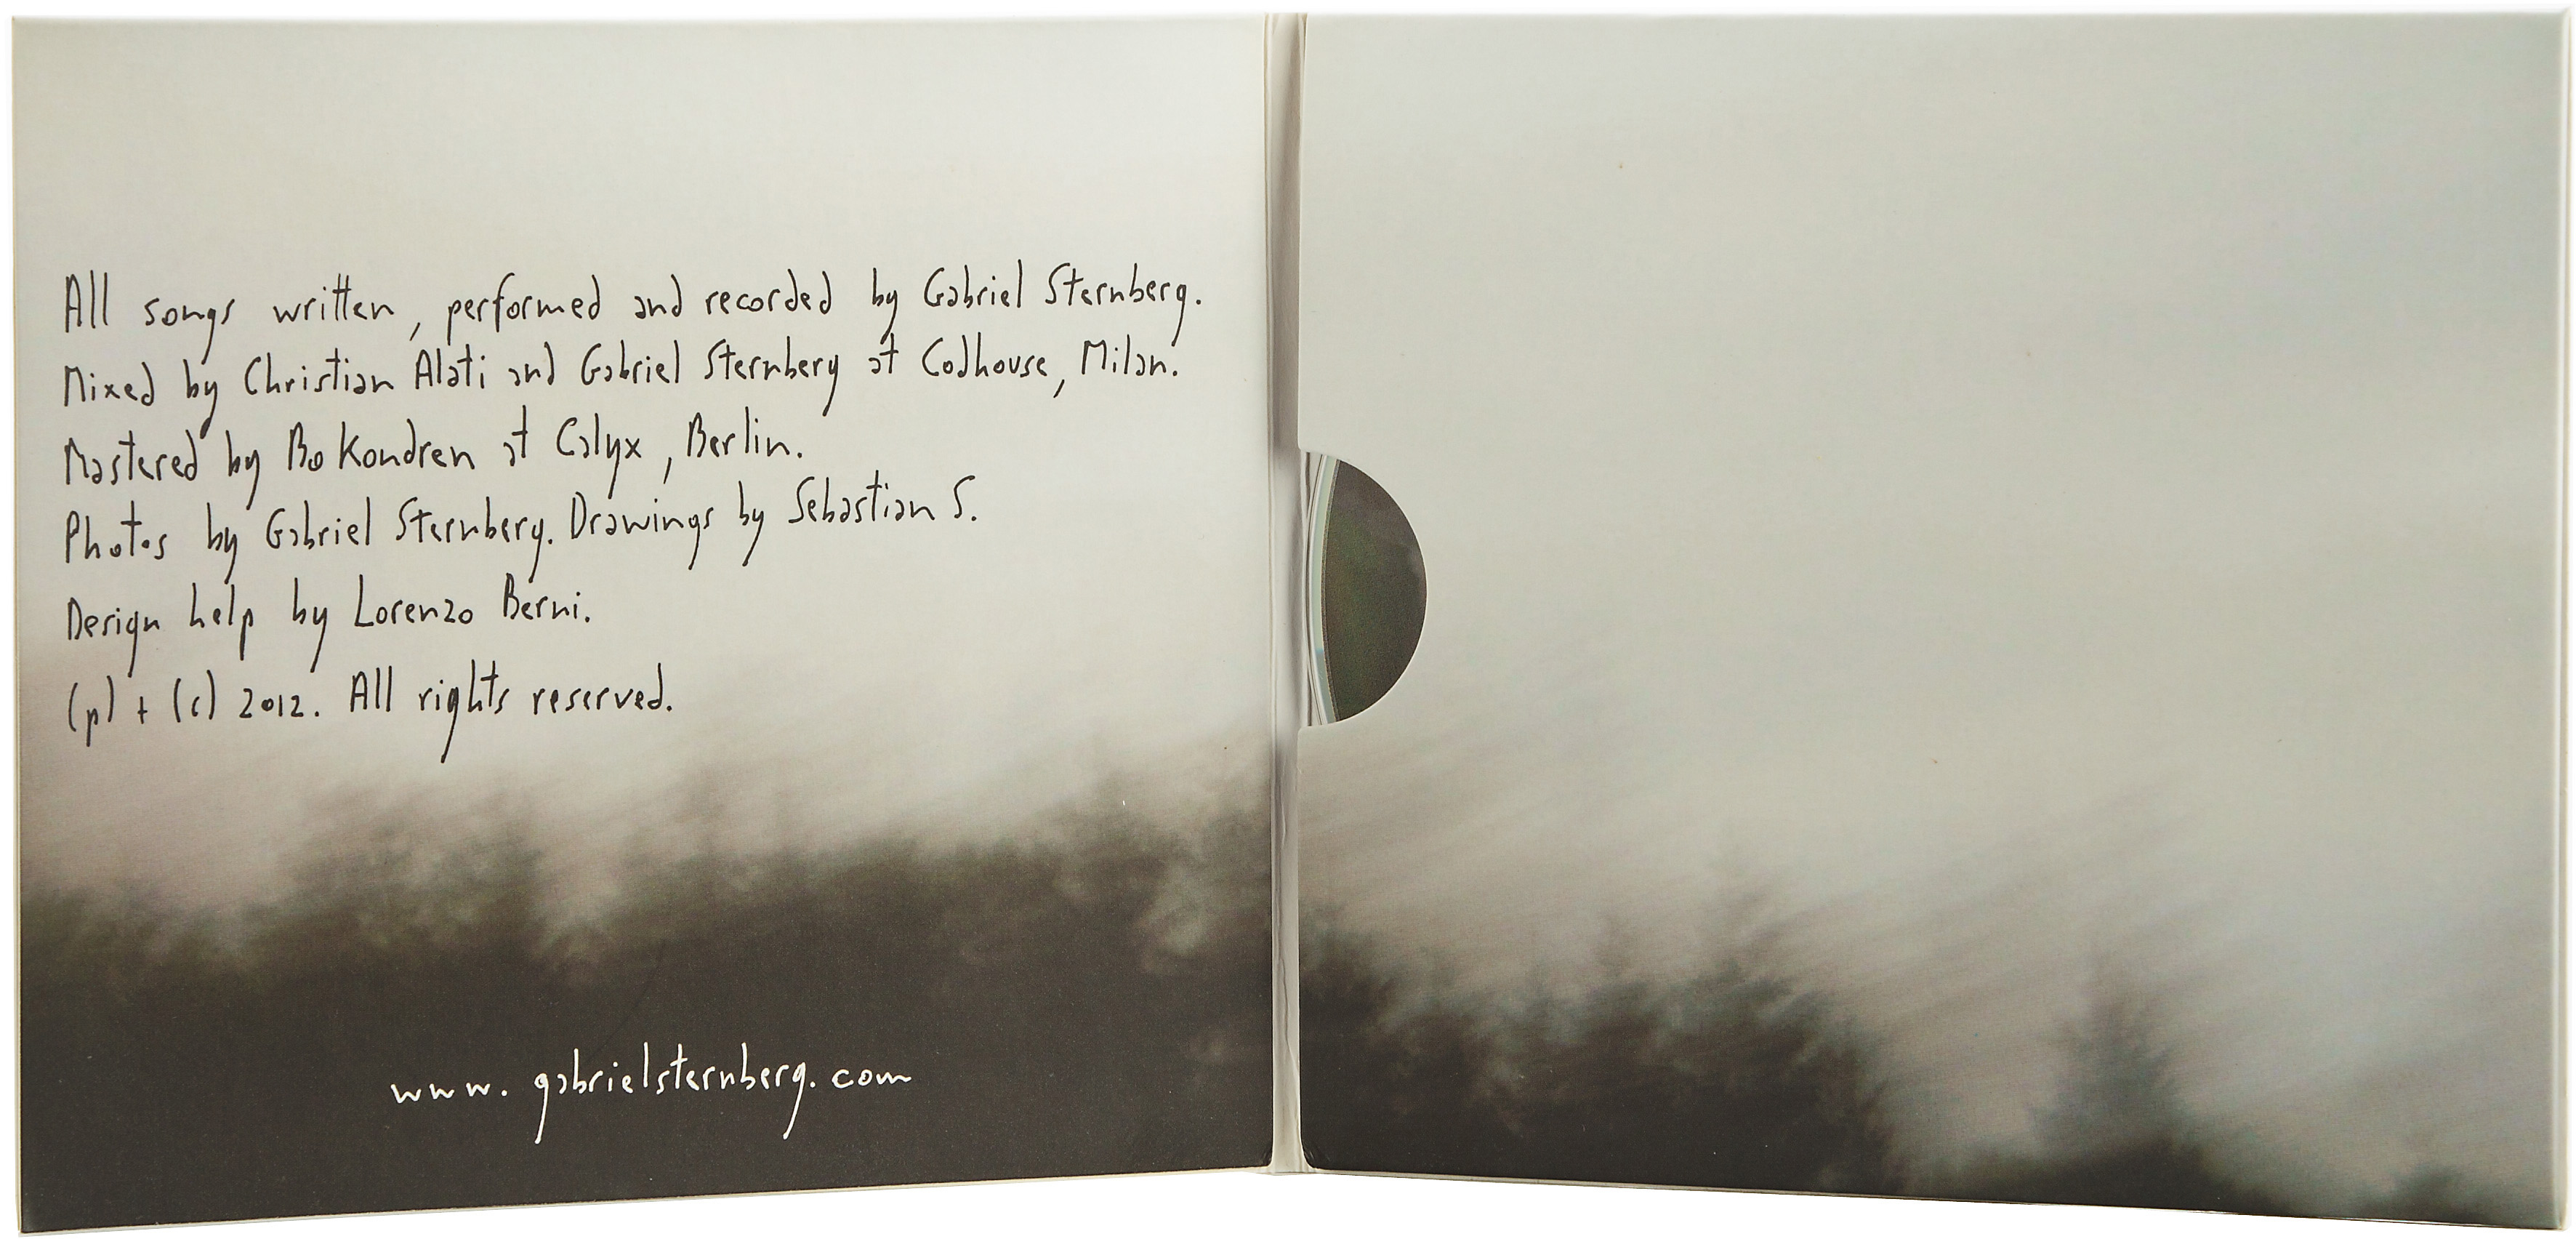 All songs written, performed and recorded by Gabriel Sternberg.
Mixed by Christian Alati and Gabriel Sternberg at Codhouse, Milan.
Mastered by Bo Kondren at Calyx, Berlin.
Photos by Gabriel Sternberg. Drawings by Sebastian S.
Design help by Lorenzo Berni.
(p) + (c) 2012. All rights reserved.
www.gabrielsternberg.com